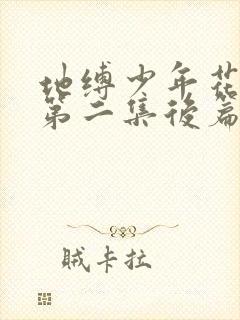 地缚少年花
第二集後篇
贼卡拉